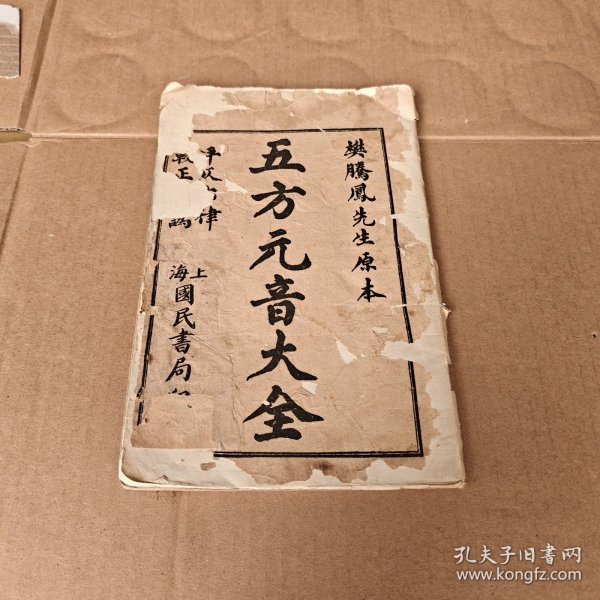 樊騰鳳先生原本
五方元音大全
平仄 律
正
上
海國民書局
孔夫子旧书网
www.kongfz.com